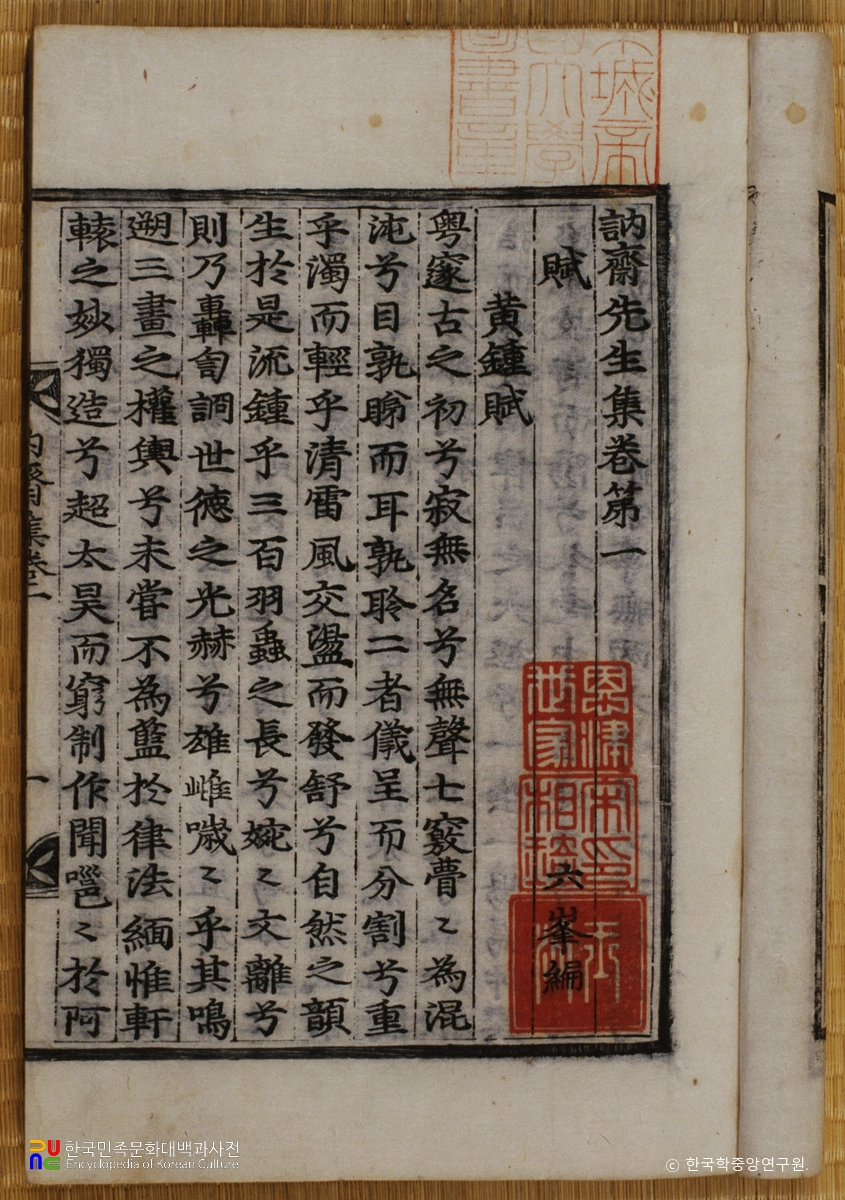 訥齋先生集卷第一
賦 六峯編
黄鍾賦
粤邃古之初兮寂無名兮無聲七竅瞢〻為混
沌兮目孰睇而耳孰聆二者儀呈而分割兮重
乎濁而輕乎清雷風交盪而發舒兮自然之韻
生於是流鍾乎三百羽蟲之長兮婉〻文離兮
則乃轟訇調世德之光赫兮雄雌噦〻乎其鳴
遡三畫之權輿兮未嘗不為藍於律法緬惟軒
轅之妙獨造兮超太昊而窮制作聞嗈〻於阿
한국민족문화대백과사전
Encyclopedia of Korean Culture
© 한국학중앙연구원.